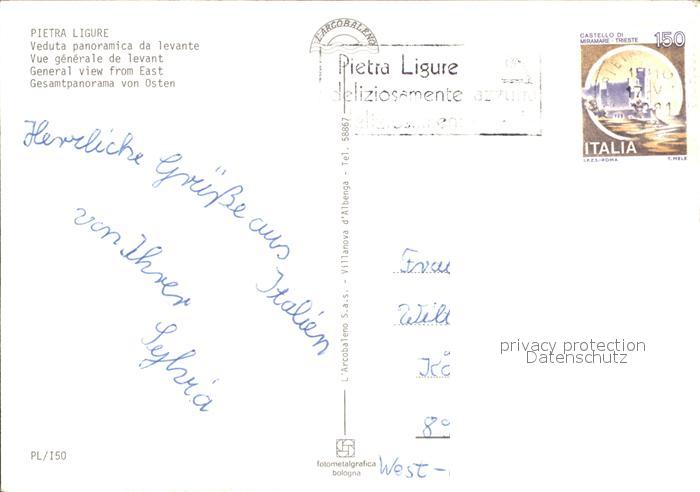 PIETRA LIGURE
Veduta panoramica da levante
Vue générale de levant
General view from East
Gesamtpanorama von Osten
L'ARCOBALENO
Pietra Ligure
deliziosamente azzurra
CASTELLO DI
MIRAMARE - TRIESTE
150
ITALIA
I.P.Z.S.-ROMA
T. MELE
Herrliche Grüße aus
Italien
von Ihrer
Sylvia
L'Arcobaleno S.a.s. - Villanova d'Albenga - Tel. 58867
Frau
privacy protection
Datenschutz
West-
PL/150
fotometalgrafica
bologna